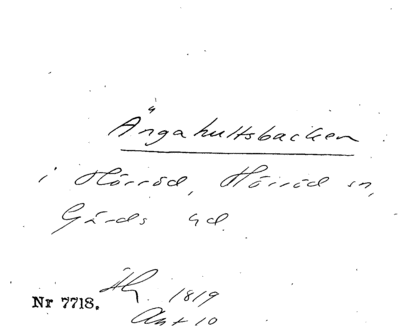 Ängahultsbacken
i Hörröd, Hörröd sn,
Gärds hd.
Äh. 1819
Nr 7718.
Akt 10